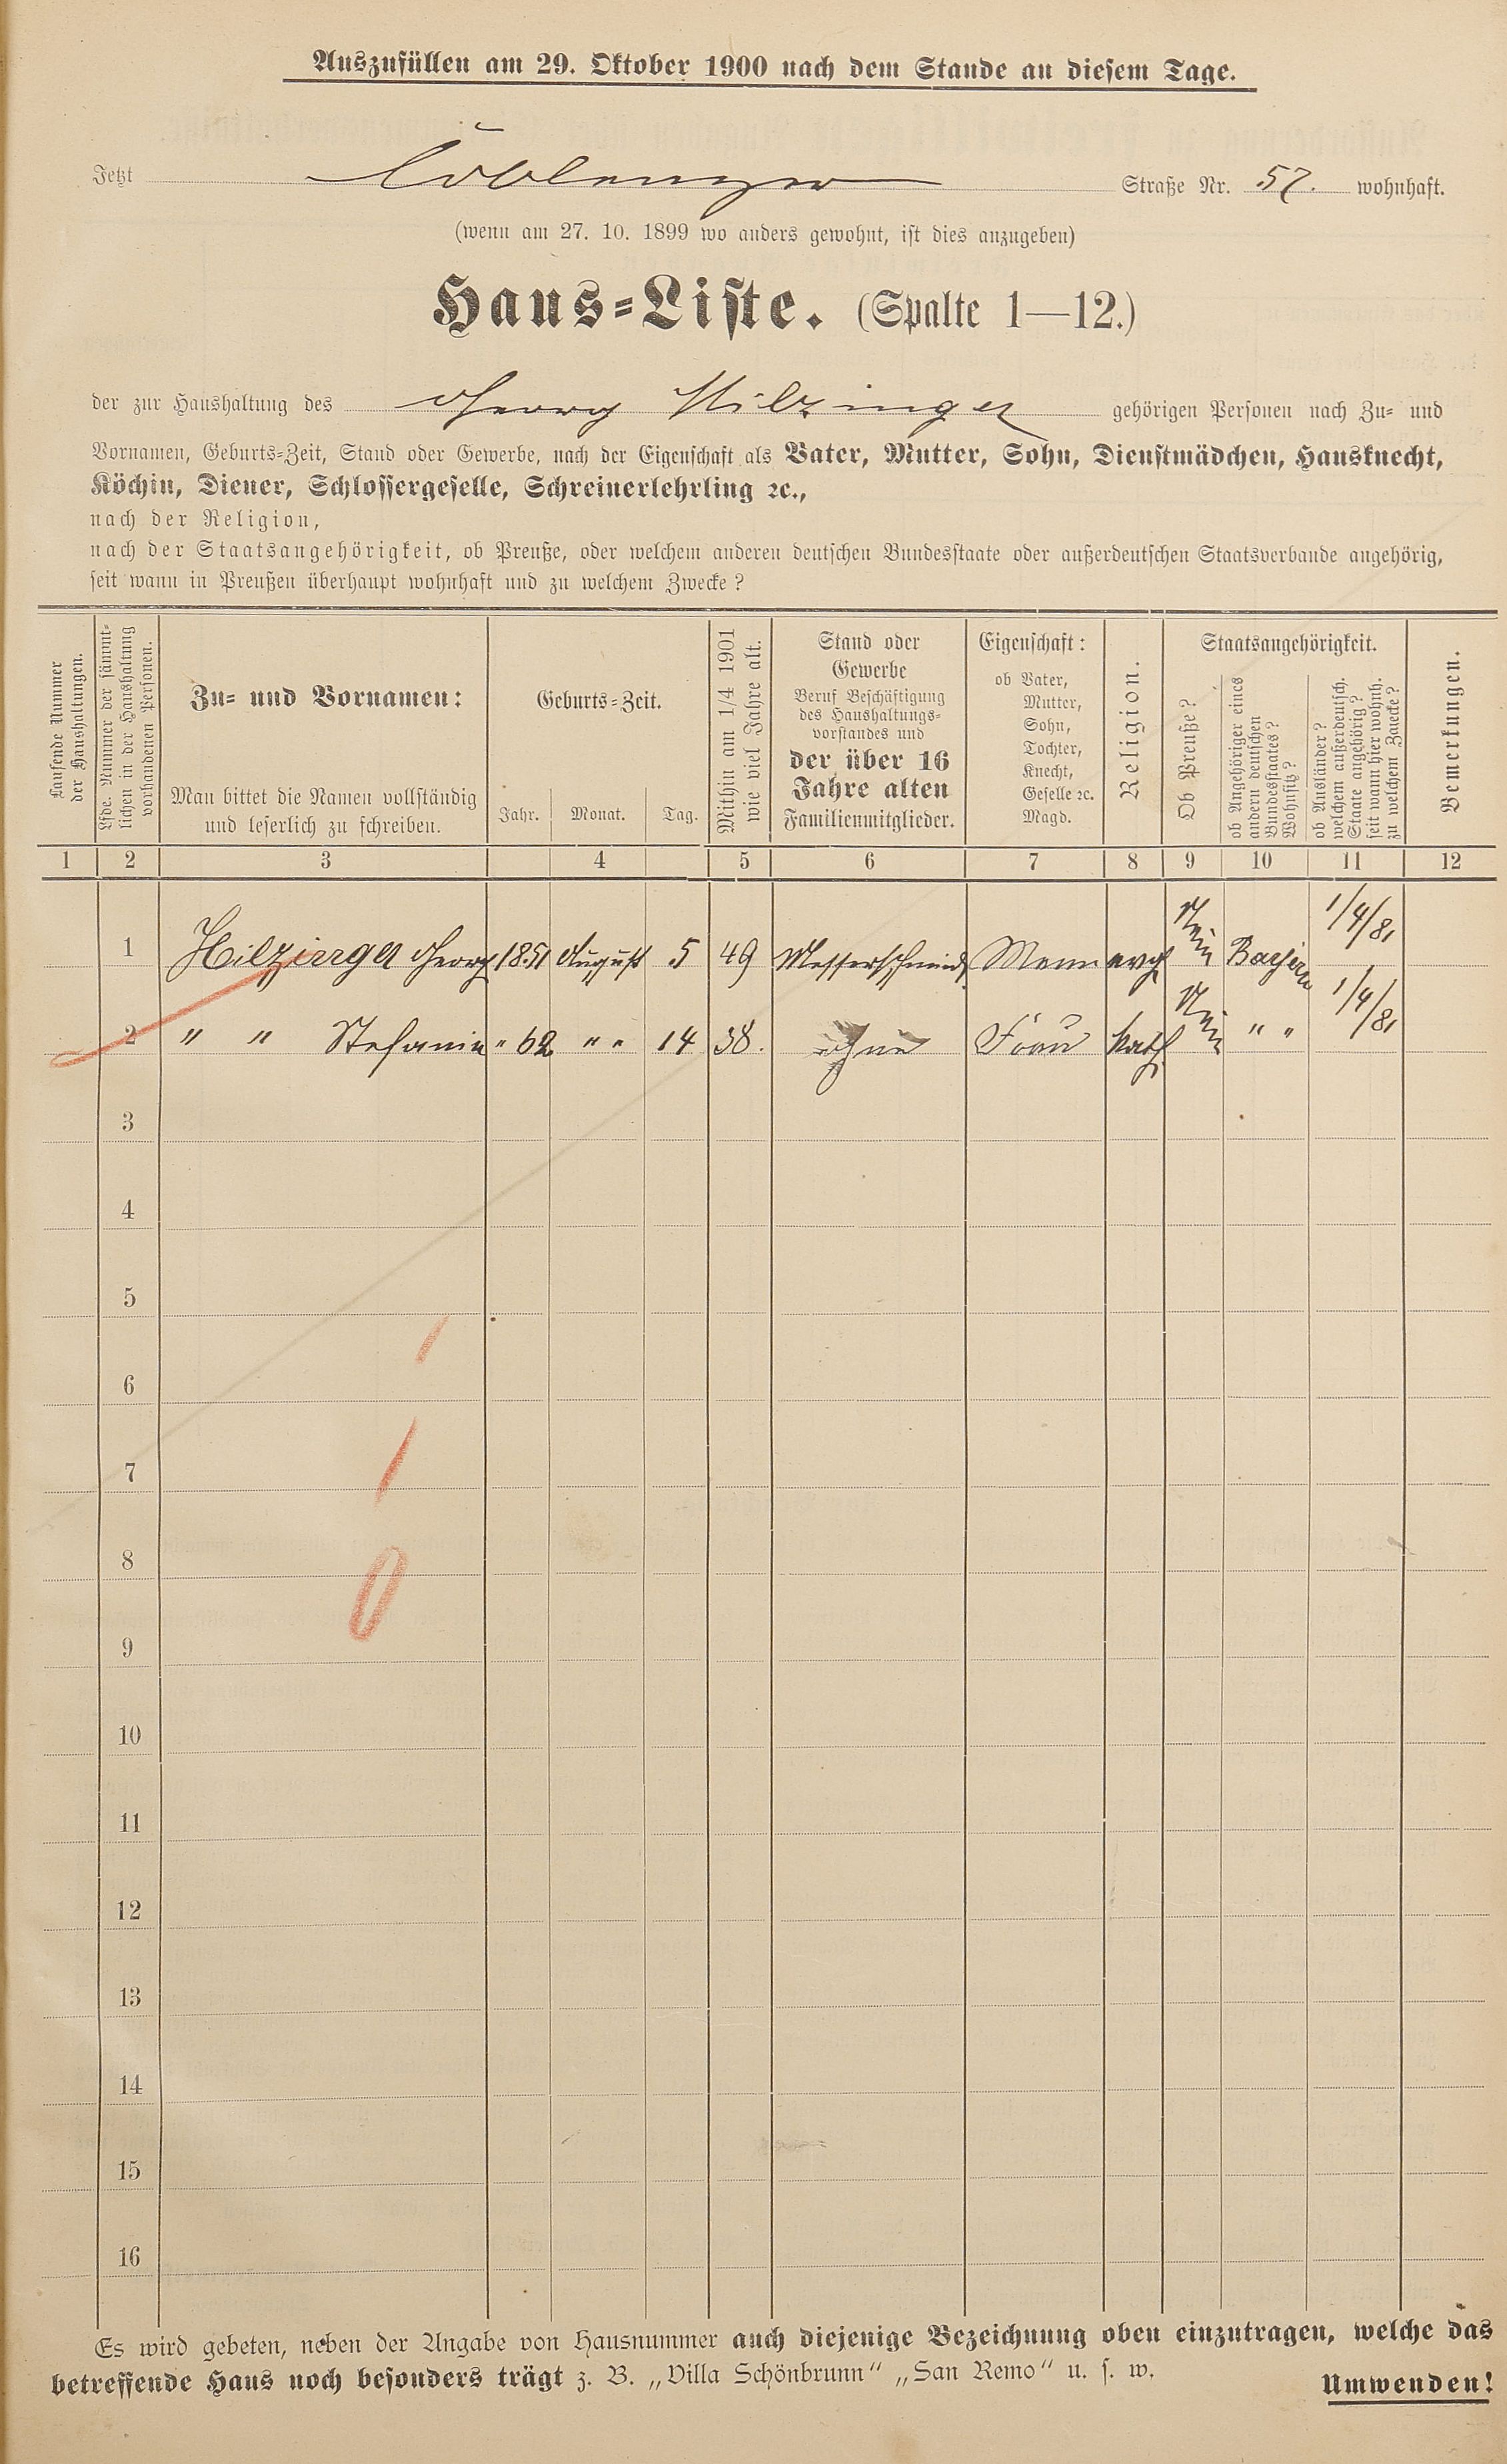 Auszufüllen am 29. Oktober 1900 nach dem Stande an diesem Tage.
Jetzt Coblenzer Straße Nr. 57. wohnhaft.
(wenn am 27. 10. 1899 wo anders gewohnt, ist dies anzugeben)
Haus-Liste. (Spalte 1—12.)
der zur Haushaltung des Georg Hilzinger gehörigen Personen nach Zu- und
Vornamen, Geburts-Zeit, Stand oder Gewerbe, nach der Eigenschaft als Vater, Mutter, Sohn, Dienstmädchen, Hausknecht,
Köchin, Diener, Schlossergeselle, Schreinerlehrling ꝛc.,
nach der Religion,
nach der Staatsangehörigkeit, ob Preuße, oder welchem anderen deutschen Bundesstaate oder außerdeutschen Staatsverbande angehörig,
seit wann in Preußen überhaupt wohnhaft und zu welchem Zwecke?
Laufende Nummer
der Haushaltungen.
Lfde. Nummer der sämmt-
lichen in der Haushaltung
vorhandenen Personen.
Zu- und Vornamen:
Man bittet die Namen vollständig
und leserlich zu schreiben.
Geburts-Zeit.
Jahr. Monat. Tag.
Mithin am 1/4 1901
wie viel Jahre alt.
Stand oder
Gewerbe
Beruf Beschäftigung
des Haushaltungs-
vorstandes und
der über 16
Jahre alten
Familienmitglieder.
Eigenschaft:
ob Vater,
Mutter,
Sohn,
Tochter,
Knecht,
Geselle ꝛc.
Magd.
Religion.
Staatsangehörigkeit.
Ob Preuße?
ob Angehöriger eines
andern deutschen
Bundesstaates?
Wohnsitz?
ob Ausländer?
welchem außerdeutsch.
Staate angehörig?
seit wann hier wohnh.
zu welchem Zwecke?
Bemerkungen.
1 2 3 4 5 6 7 8 9 10 11 12
1 Hilzinger Georg 1851 August 5 49 Messerschmied Mann evg Nein Bayern 1/4/81
2 " " Stefanie " 62 " " 14 38. ohne Frau kath Nein " " 1/4/81
3
4
5
6
7
8
9
10
11
12
13
14
15
16
Es wird gebeten, neben der Angabe von Hausnummer auch diejenige Bezeichnung oben einzutragen, welche das
betreffende Haus noch besonders trägt z. B. „Villa Schönbrunn“ „San Remo“ u. s. w.
Umwenden!